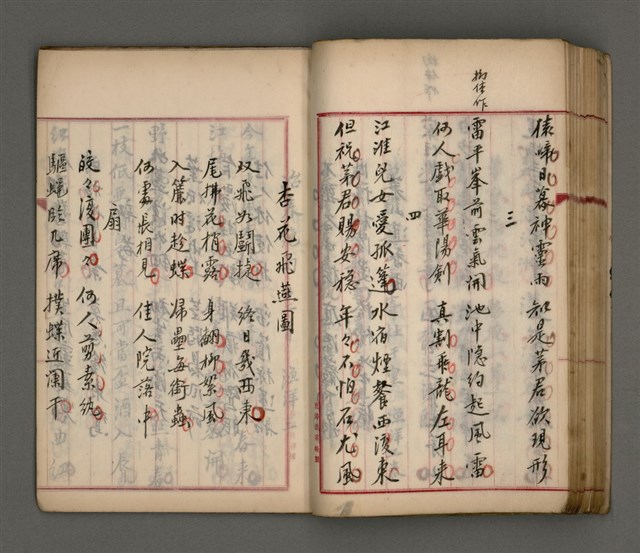 猿啼日暮神靈雨 知是茅君欲現形
三
雷平峯前雲氣開 池中隐約起風雷
何人戲取華陽劍 真割乖龍左耳來
四
江淮兒女愛孤篷 水宿煙餐西復東
但祝茅君賜安穩 年々不怕石尤風
杏花飛燕圖
双飛如鬪捷 終日幾西東
尾拂花梢露 身翻柳絮風
入簾时趁蝶 歸壘每銜蟲
何處長相見 佳人院落中
扇
皎々復團々 何人剪素紈
驅蠅臨几席 撲蝶近闌干